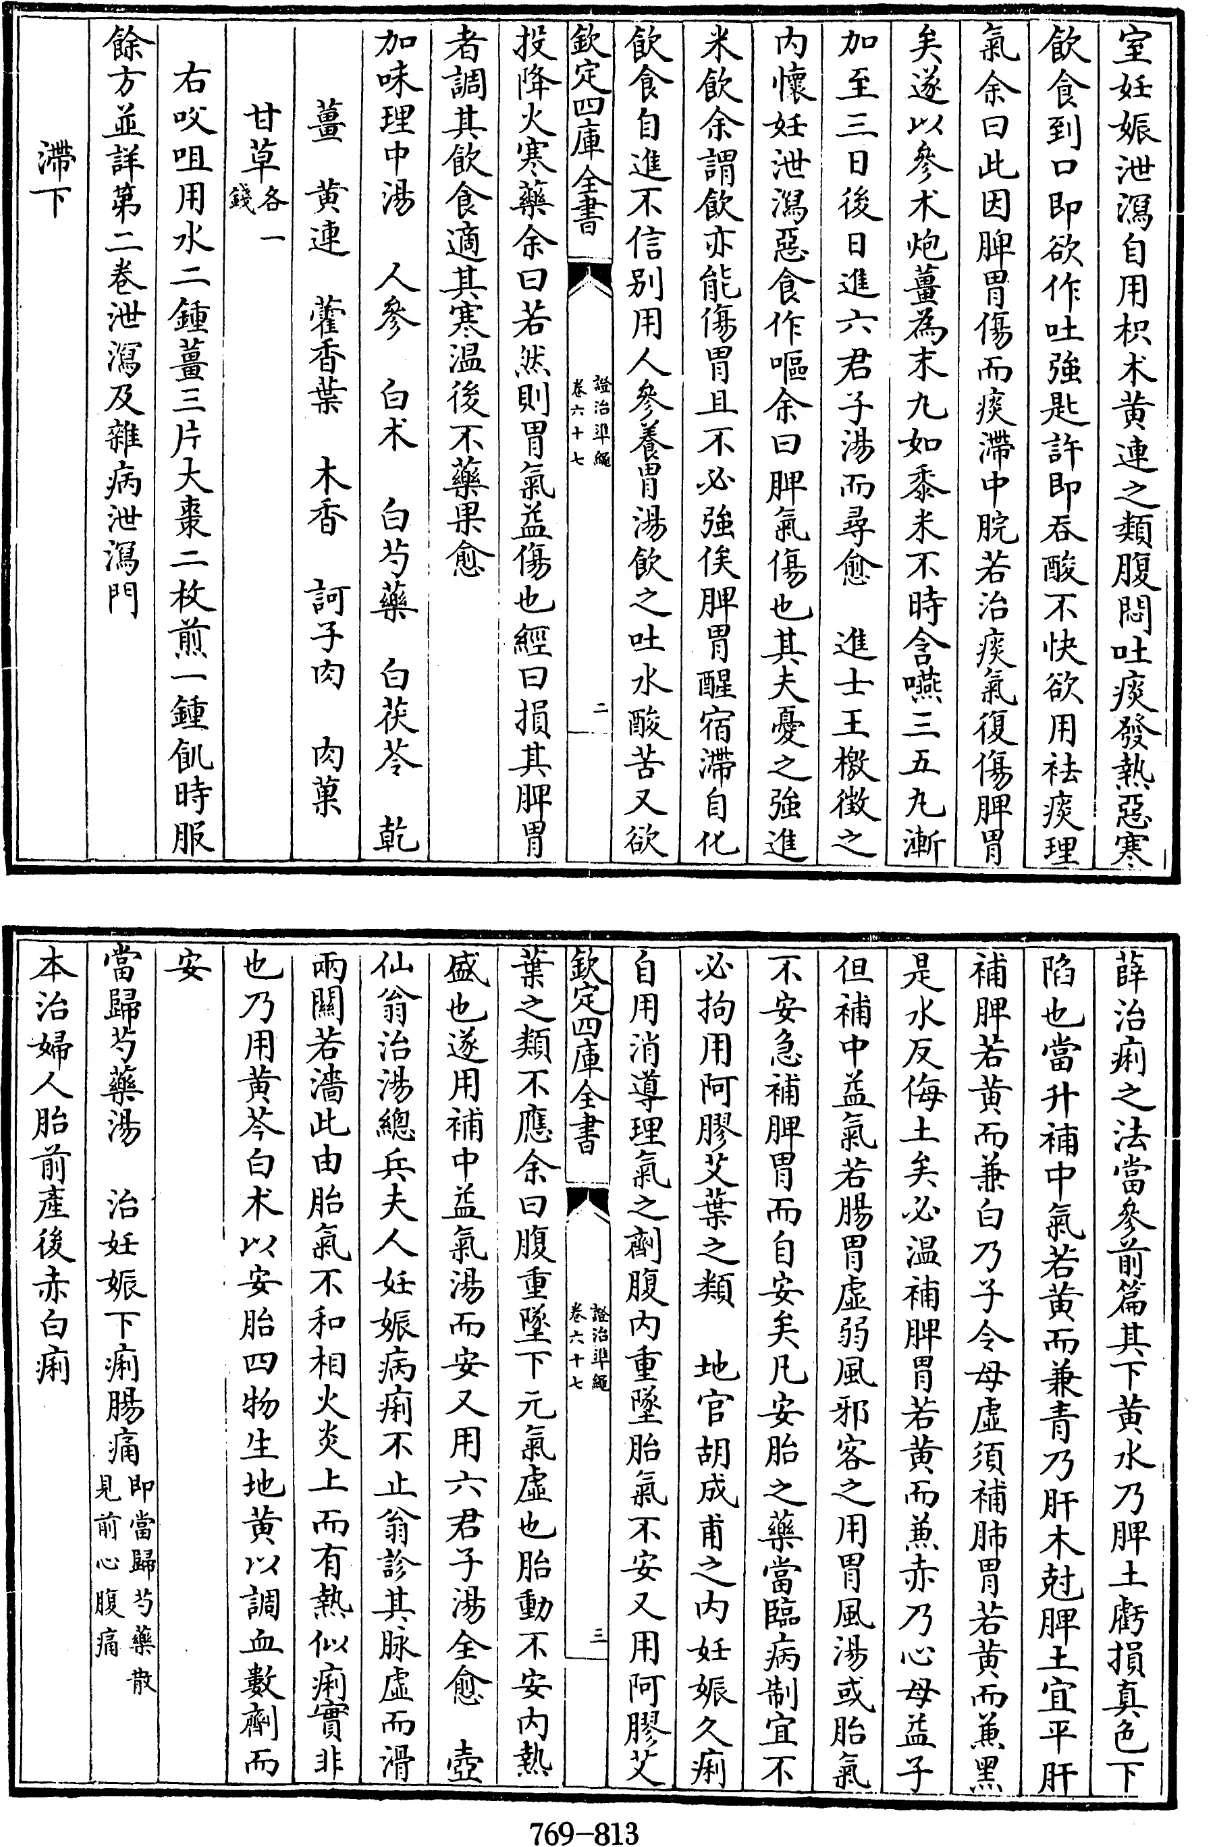 室妊娠泄瀉自用枳术黄連之類腹悶吐痰發熱惡寒
飲食到口即欲作吐強匙許即吞酸不快欲用祛痰理
氣余曰此因脾胃傷而痰滯中脘若治痰氣復傷脾胃
矣遂以參术炮薑為末丸如黍米不時含嚥三五丸漸
加至三日後日進六君子湯而尋愈　進士王檄徵之
内懷妊泄瀉惡食作嘔余曰脾氣傷也其夫憂之強進
米飲余謂飲亦能傷胃且不必強俟脾胃醒宿滯自化
飲食自進不信别用人參養胃湯飲之吐水酸苦又欲
欽定四庫全書
證治準繩
卷六十七
二
投降火寒藥余曰若然則胃氣益傷也經曰損其脾胃
者調其飲食適其寒温後不藥果愈
加味理中湯　人參　白术　白芍藥　白茯苓　乾
薑　黄連　藿香葉　木香　訶子肉　肉菓
甘草各一錢
右㕮咀用水二鍾薑三片大棗二枚煎一鍾飢時服
餘方並詳第二卷泄瀉及雜病泄瀉門
滯下
薛治痢之法當參前篇其下黄水乃脾土虧損真色下
陷也當升補中氣若黄而兼青乃肝木尅脾土宜平肝
補脾若黄而兼白乃子令母虛須補肺胃若黄而兼黑
是水反侮土矣必温補脾胃若黄而兼赤乃心母益子
但補中益氣若腸胃虛弱風邪客之用胃風湯或胎氣
不安急補脾胃而自安矣凡安胎之藥當臨病制宜不
必拘用阿膠艾葉之類　地官胡成甫之内妊娠久痢
自用消導理氣之劑腹内重墜胎氣不安又用阿膠艾
欽定四庫全書
證治準繩
卷六十七
三
葉之類不應余曰腹重墜下元氣虛也胎動不安内熱
盛也遂用補中益氣湯而安又用六君子湯全愈　壺
仙翁治湯總兵夫人妊娠病痢不止翁診其脉虛而滑
兩關若濇此由胎氣不和相火炎上而有熱似痢實非
也乃用黄芩白术以安胎四物生地黄以調血數劑而
安
當歸芍藥湯　治妊娠下痢腸痛即當歸芍藥散見前心腹痛
本治婦人胎前產後赤白痢
769-813